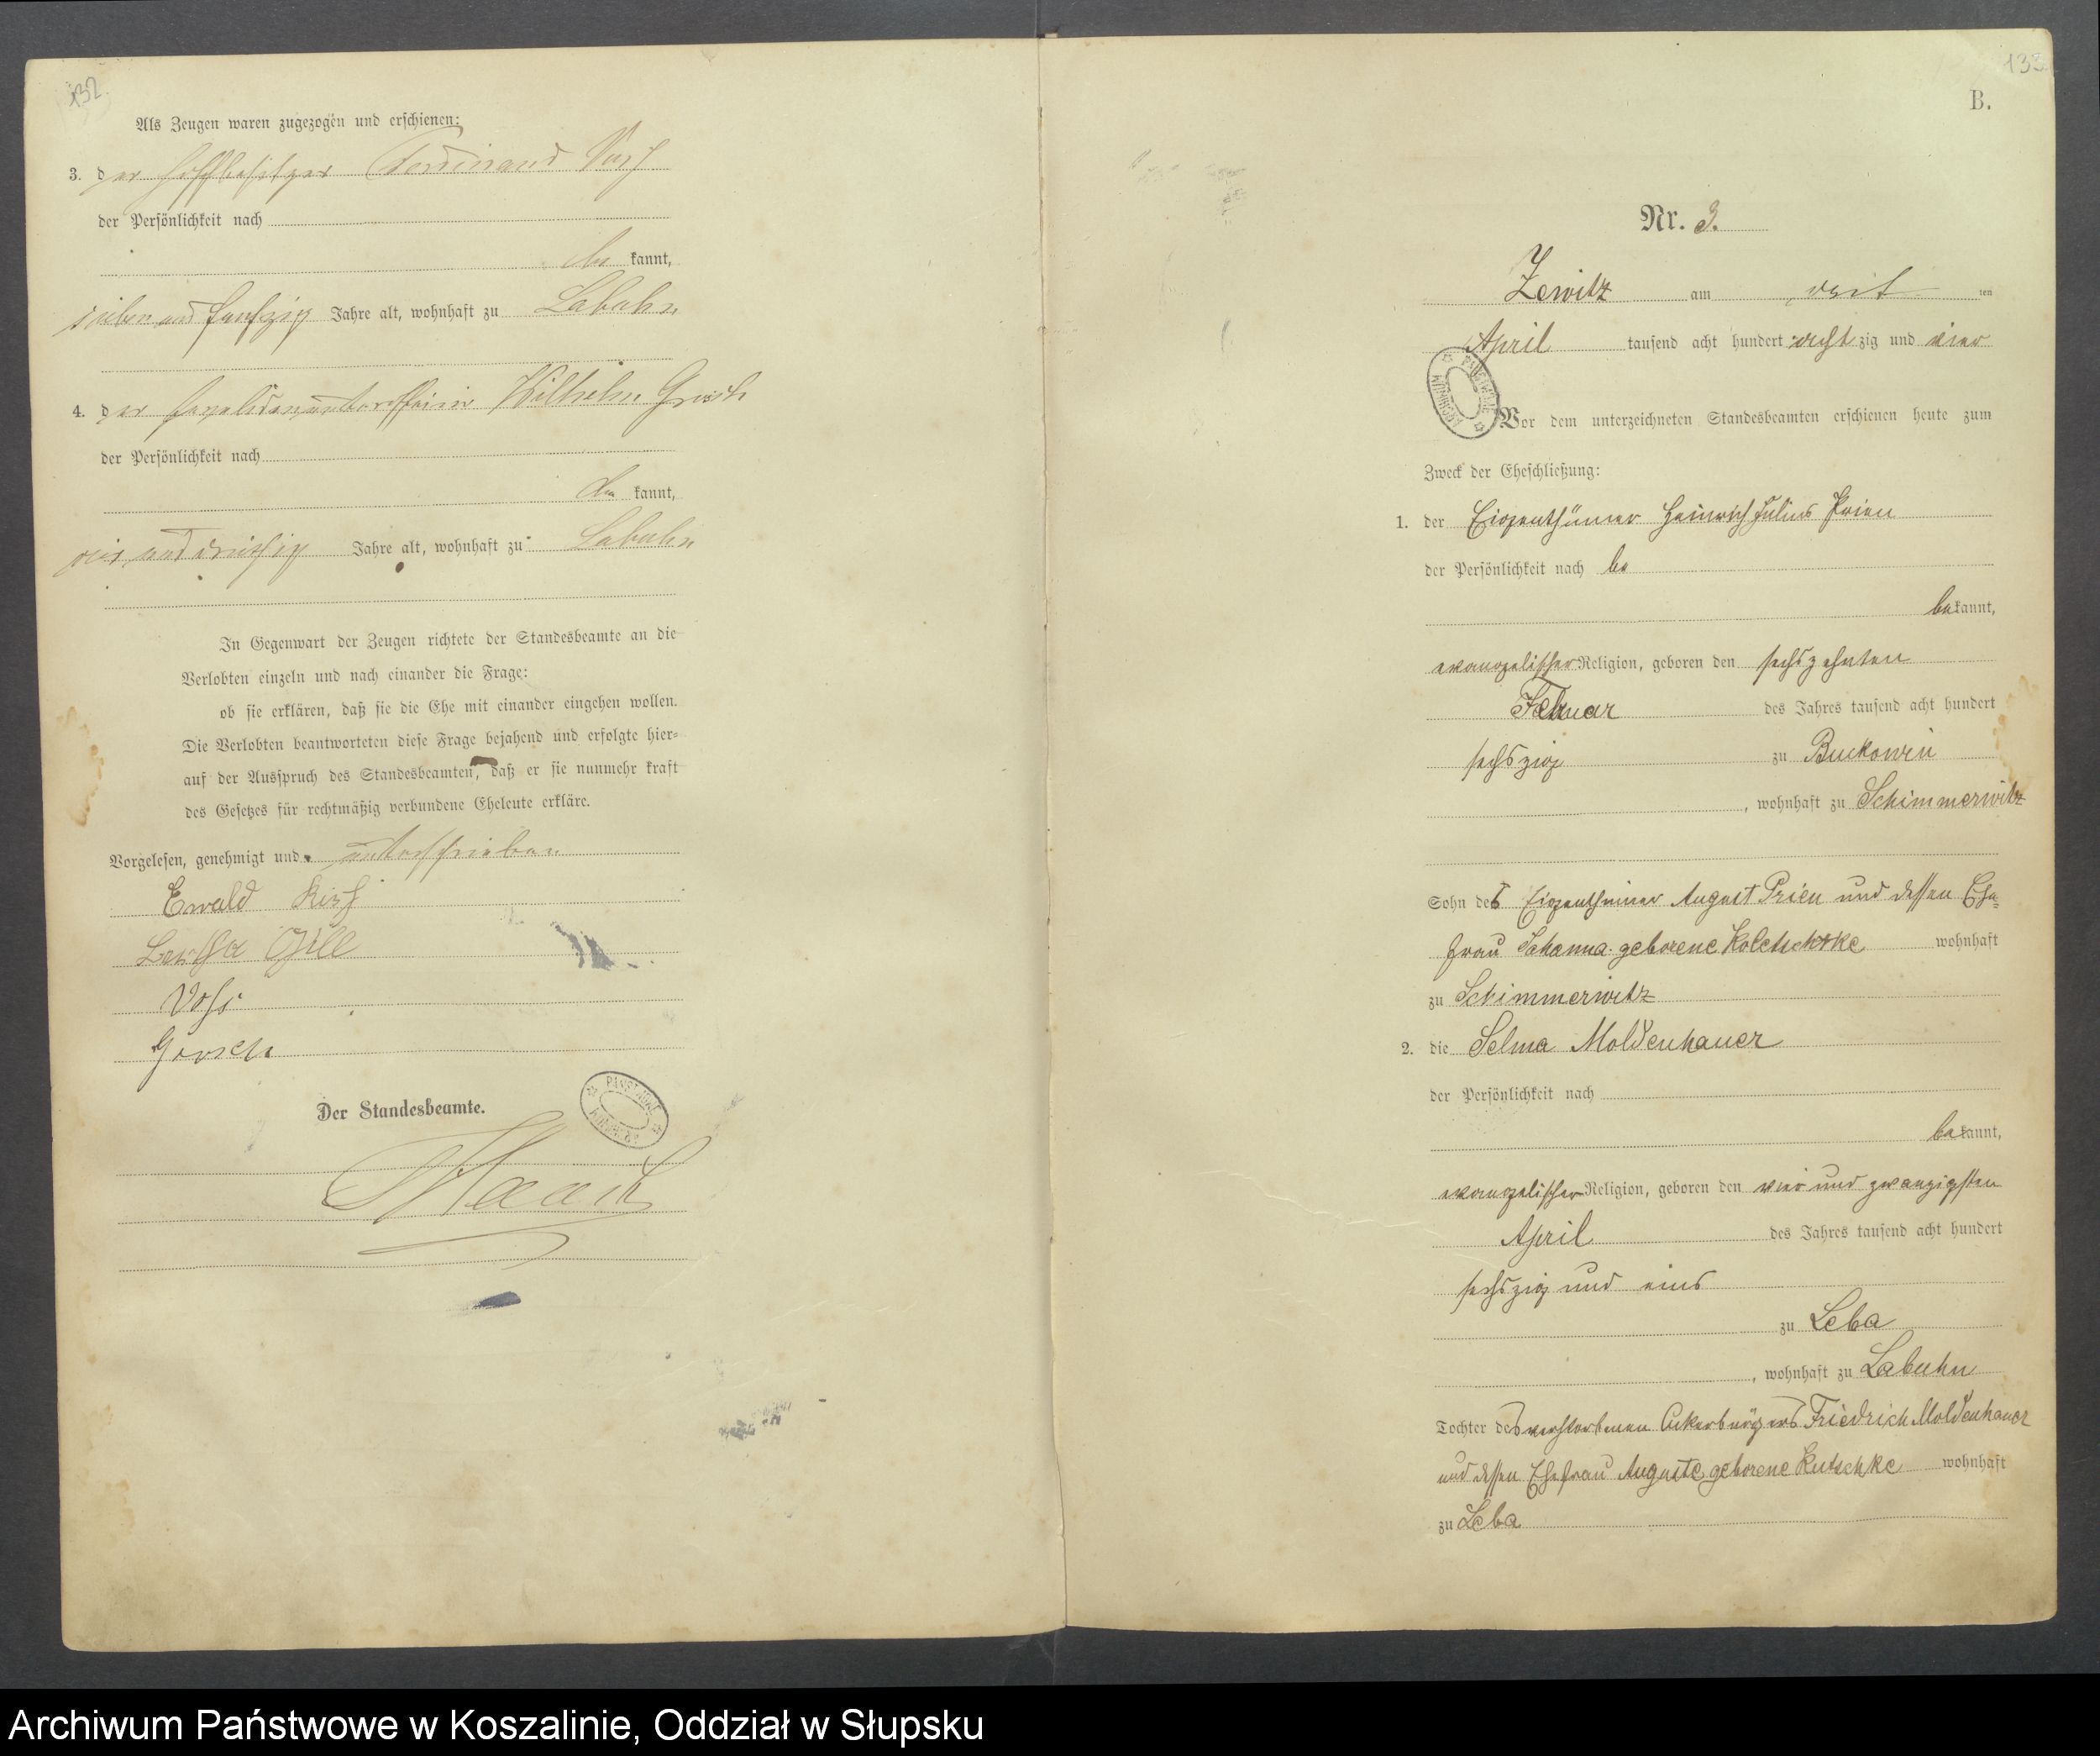 132
Als Zeugen waren zugezogen und erschienen:
3. der Hofbesitzer Ferdinand
der Persönlichkeit nach
be kannt,
sieben und funfzig Jahre alt, wohnhaft zu Labuhn
4. der Wilhelm Groch
der Persönlichkeit nach
be kannt,
und dreißig Jahre alt, wohnhaft zu Labuhn
In Gegenwart der Zeugen richtete der Standesbeamte an die
Verlobten einzeln und nach einander die Frage:
ob sie erklären, daß sie die Ehe mit einander eingehen wollen.
Die Verlobten beantworteten diese Frage bejahend und erfolgte hier=
auf der Ausspruch des Standesbeamten, daß er sie nunmehr kraft
des Gesetzes für rechtmäßig verbundene Eheleute erkläre.
Vorgelesen, genehmigt und unterschrieben
Ewald
Bertha
Voß
Der Standesbeamte.
133
B.
Nr. 3.
Zewitz am ten
April tausend acht hundert acht zig und vier
Vor dem unterzeichneten Standesbeamten erschienen heute zum
Zweck der Eheschließung:
1. der Eigenthümer Heinrich Julius Prien
der Persönlichkeit nach be
be kannt,
evangelischer Religion, geboren den sechszehnten
Februar des Jahres tausend acht hundert
sechszig zu Buckowin
, wohnhaft zu Schimmerwitz
Sohn des Eigenthümer August Prien und dessen Ehe=
frau Johanna geborene wohnhaft
zu Schimmerwitz
2. die Selma Moldenhauer
der Persönlichkeit nach
be kannt,
evangelischer Religion, geboren den vier und zwanzigsten
April des Jahres tausend acht hundert
sechszig und eins
zu Leba
, wohnhaft zu Labuhn
Tochter des verstorbenen Ackerbürgers Friedrich Moldenhauer
und dessen Ehefrau Auguste geborene Kutschke wohnhaft
zu Leba
Archiwum Państwowe w Koszalinie, Oddział w Słupsku